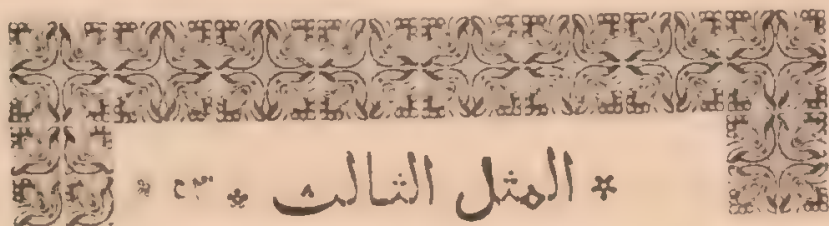 * المثل الثالث * ٤٣ *